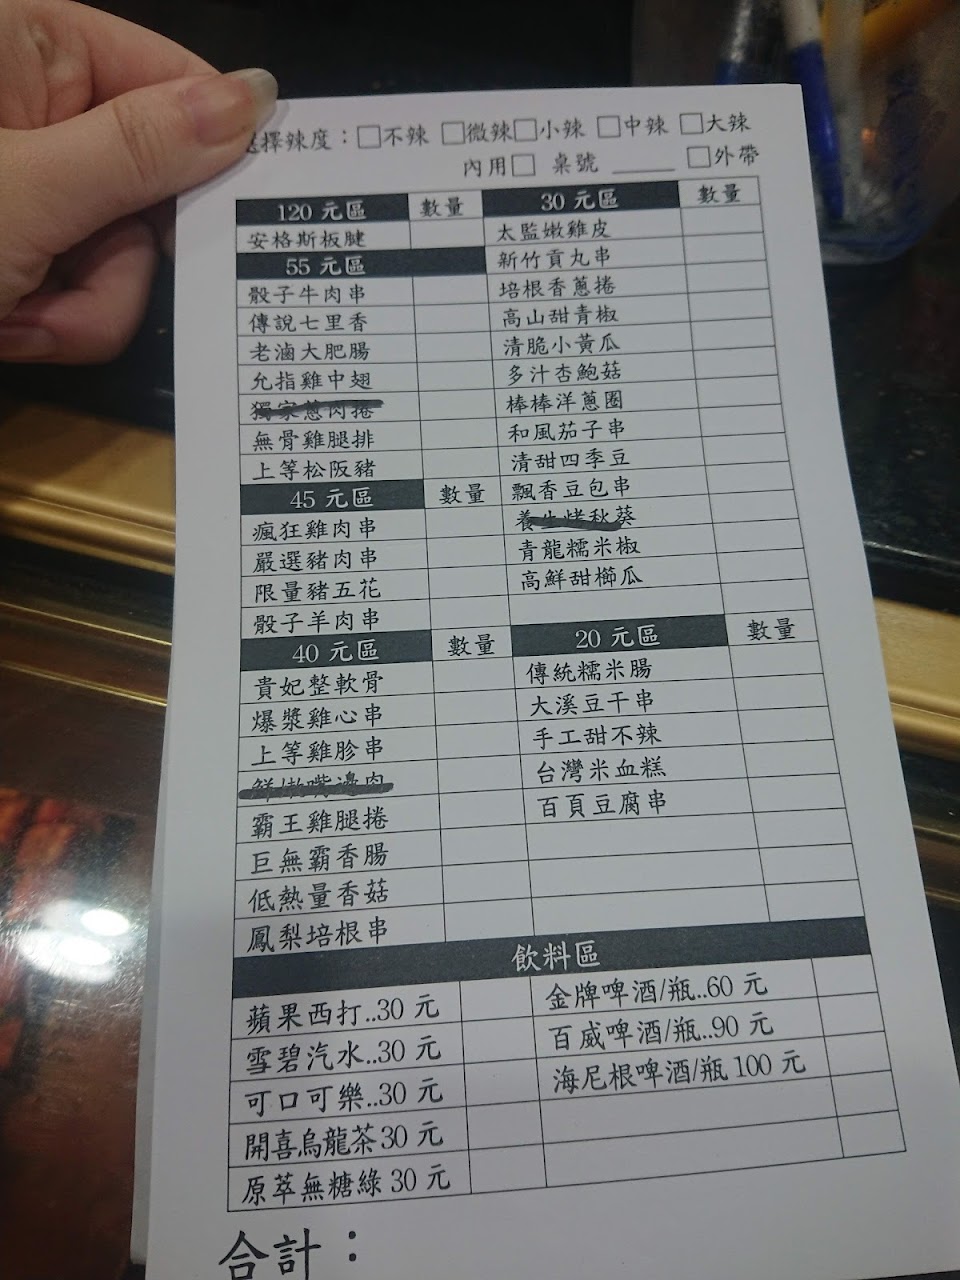 擇辣度：□不辣 □微辣□小辣 □中辣 □大辣
內用□ 桌號 ____ □外帶
120 元區 數量
安格斯板腱
55 元區
骰子牛肉串
傳說七里香
老滷大肥腸
允指雞中翅
獨家蔥肉捲
無骨雞腿排
上等松阪豬
45 元區 數量
瘋狂雞肉串
嚴選豬肉串
限量豬五花
骰子羊肉串
40 元區 數量
貴妃整軟骨
爆漿雞心串
上等雞胗串
鮮嫩嘴邊肉
霸王雞腿捲
巨無霸香腸
低熱量香菇
鳳梨培根串
30 元區 數量
太監嫩雞皮
新竹貢丸串
培根香蔥捲
高山甜青椒
清脆小黃瓜
多汁杏鮑菇
棒棒洋蔥圈
和風茄子串
清甜四季豆
飄香豆包串
養生烤秋葵
青龍糯米椒
高鮮甜櫛瓜
20 元區 數量
傳統糯米腸
大溪豆干串
手工甜不辣
台灣米血糕
百頁豆腐串
飲料區
蘋果西打..30 元
雪碧汽水..30 元
可口可樂..30 元
開喜烏龍茶 30 元
原萃無糖綠 30 元
金牌啤酒/瓶..60 元
百威啤酒/瓶..90 元
海尼根啤酒/瓶 100 元
合計：